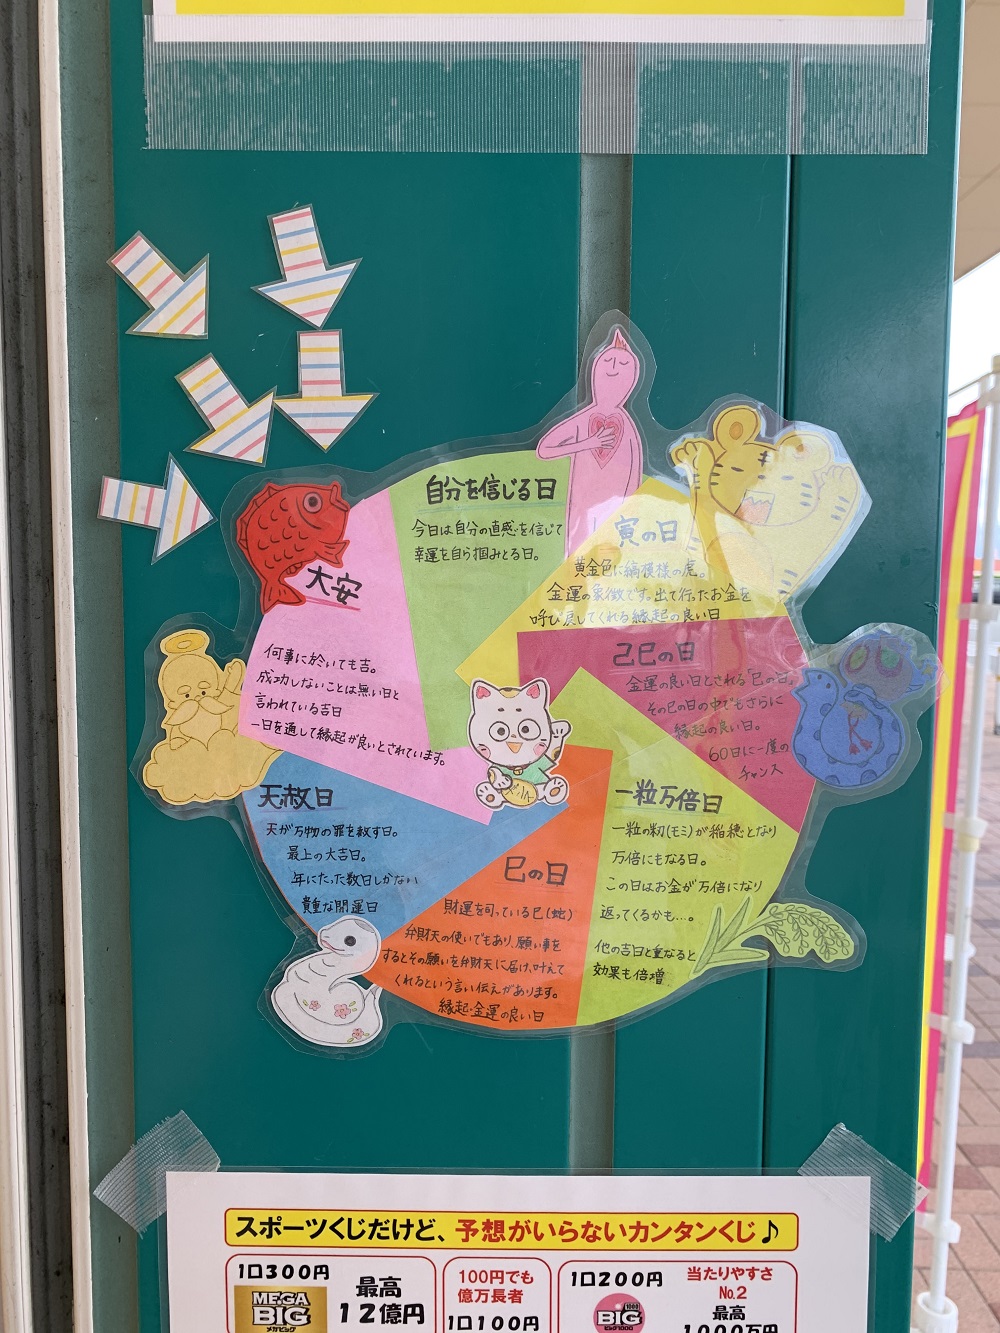 自分を信じる日
今日は自分の直感を信じて
幸運を自ら掴みとる日。
寅の日
黄金色に縞模様の虎。
金運の象徴です。出て行ったお金を
呼び戻してくれる縁起の良い日
己巳の日
金運の良い日とされる「巳の日」
その巳の日の中でもさらに
縁起の良い日。
60日に一度の
チャンス
一粒万倍日
一粒の籾(モミ)が稲穂となり
万倍にもなる日。
この日はお金が万倍になり
返ってくるかも…。
他の吉日と重なると
効果も倍増
巳の日
財運を司っている巳(蛇)
弁財天の使いでもあり、願い事を
するとその願いを弁財天に届け、叶えて
くれるという言い伝えがあります。
縁起・金運の良い日
天赦日
天が万物の罪を赦す日。
最上の大吉日。
年にたった数日しかない
貴重な開運日
大安
何事に於いても吉。
成功しないことは無い日と
言われている吉日
一日を通して縁起が良いとされています。
スポーツくじだけど、予想がいらないカンタンくじ♪
1口300円
MEGA
BIG
メガビッグ
最高
12億円
100円でも
億万長者
1口100円
1口200円
1000
BIG
ビッグ1000
当たりやすさ
No.2
最高
1000万円